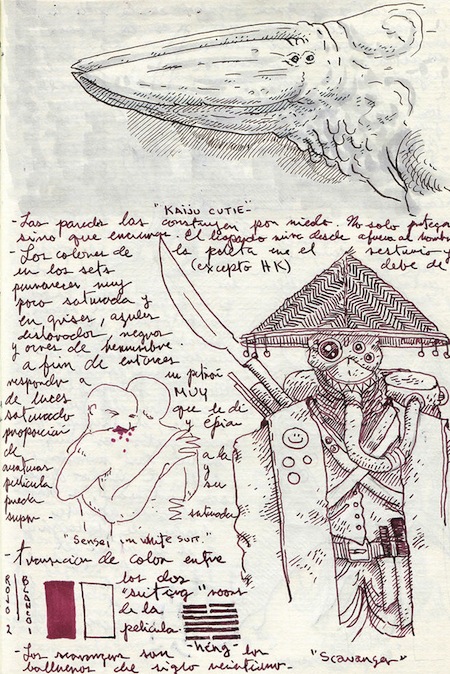 "KAIJU CUTIE"
- Las paredes las construyen por miedo. No solo protegen
sino que encierran. El legado mira desde afuera al hombre
- Los colores de la paleta en el vestuario y
en los sets (excepto HK) debe de
permanecer muy
poco saturada y
en grises, azules
deslavados, negros
y ocres de herrumbre
a fin de entonces
responder a un patrón
de luces MUY
saturado que le dé
proporción y épica
de a la
aventuras y
película su
pueda saturada
"Sensei in white suit."
- transición de color entre
los dos
"suiting" rooms
de la
película.
ROJO 2
BLANCO 1
- héng
- Los scavangers son los
balleneros de siglo veintiuno.
"Scavanger"